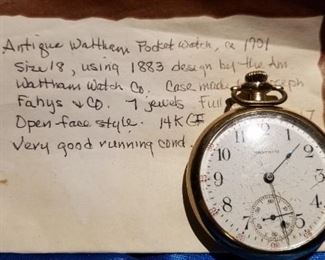 Antique Waltham Pocket Watch, ca 1901
Size 18, using 1883 design by the Am
Waltham Watch Co. Case made eph
Fahys & CO. 7 jewels Full 7
Open face style. 14K GF
Very good running cond.
WALTHAM
12
1
2
3
4
5
7
8
9
10
11